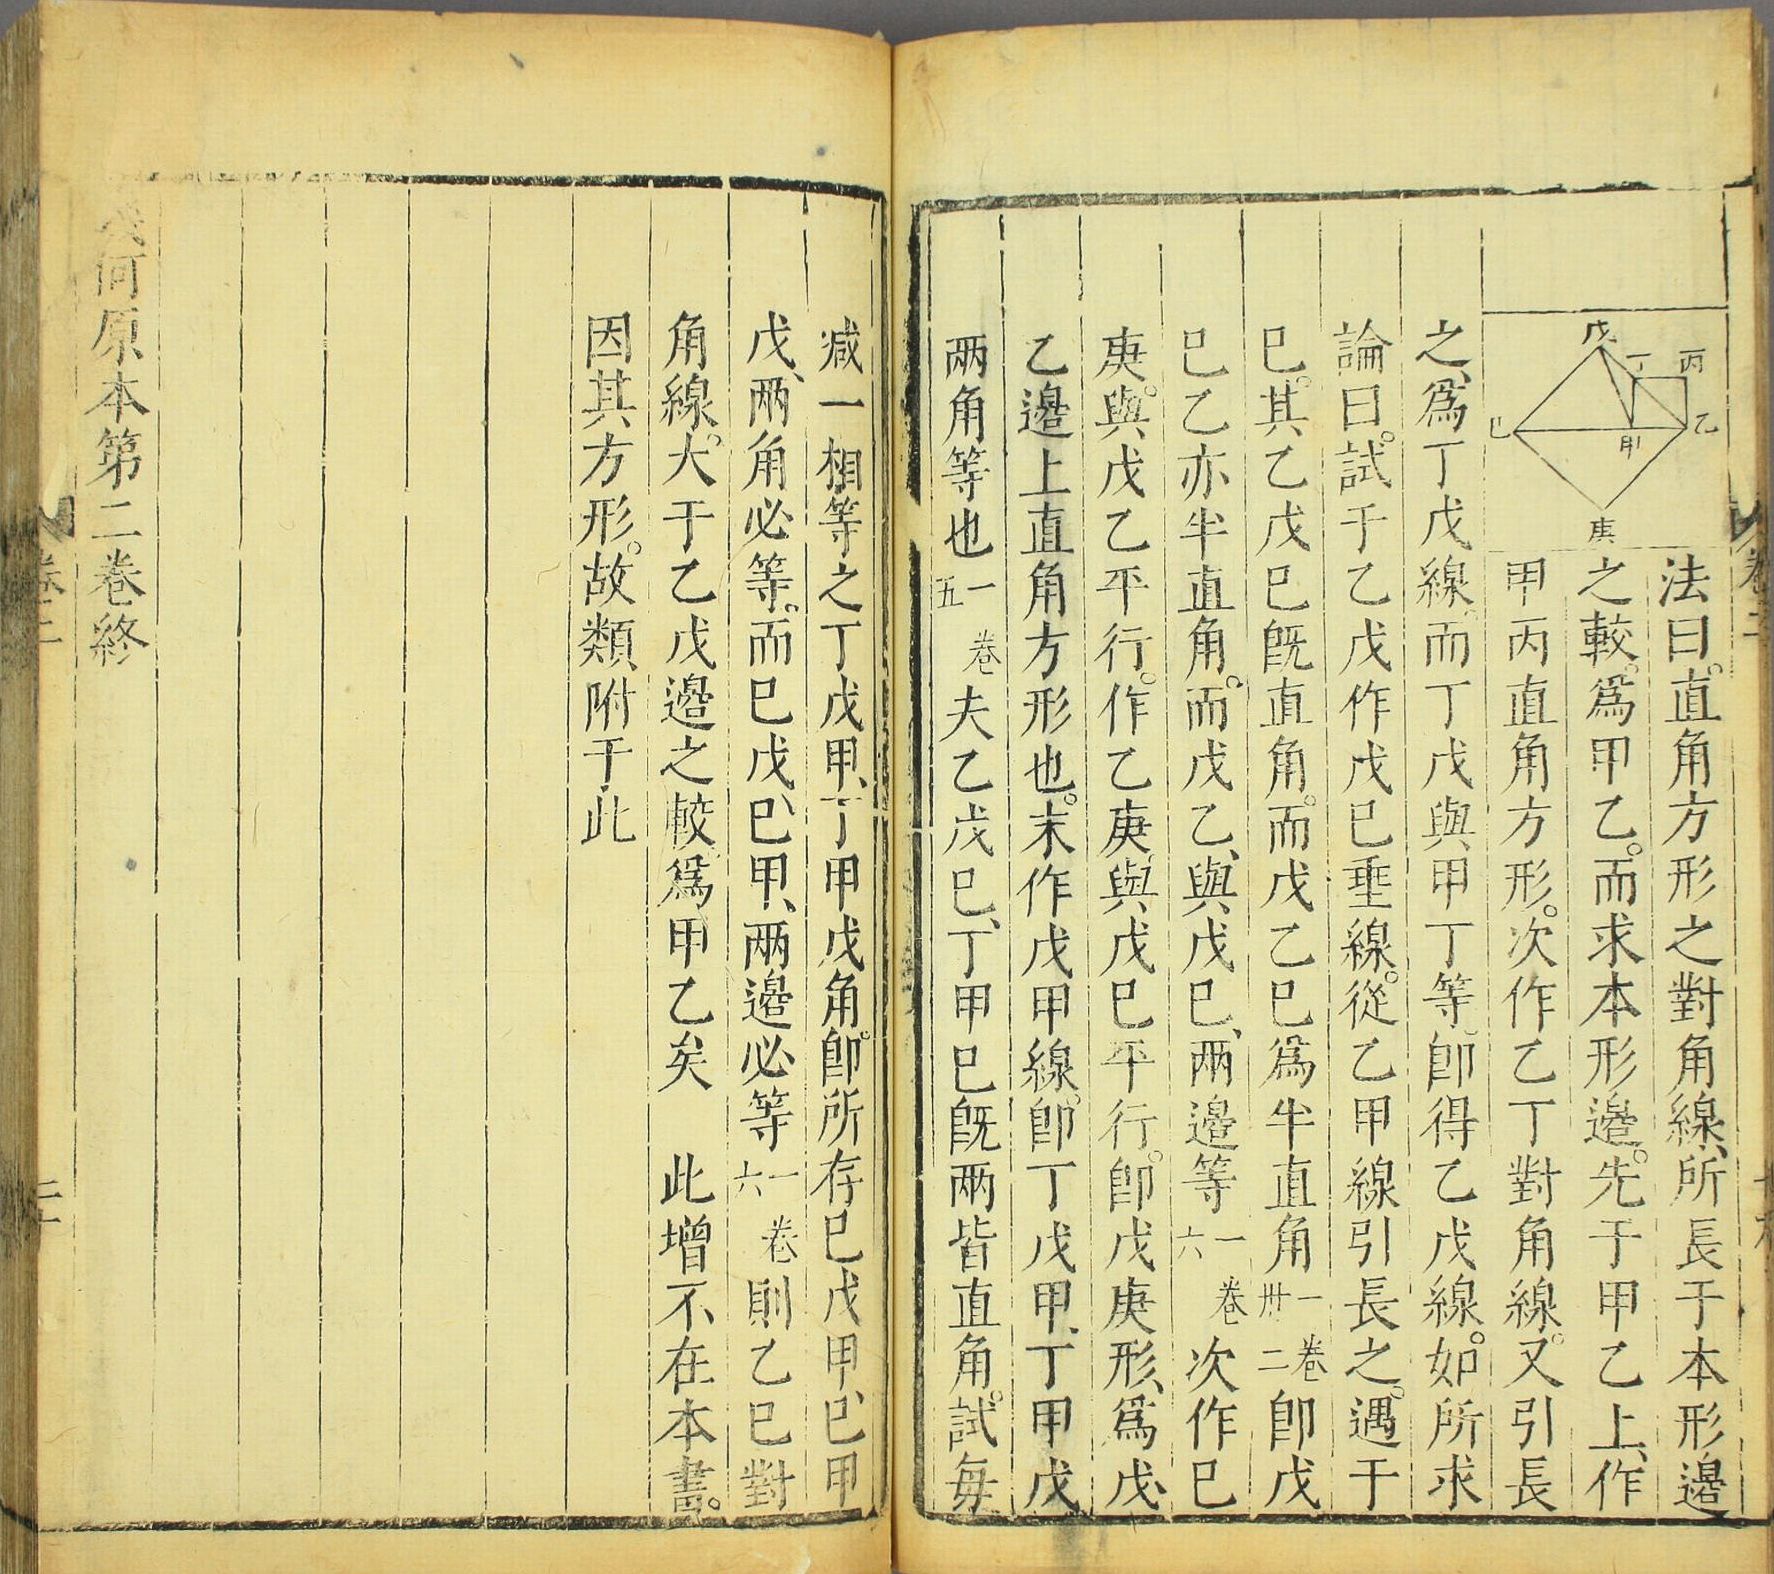 戊
丁
丙
己
甲
乙
庚
法曰。直角方形之對角線、所長于本形邊
之較。爲甲乙。而求本形邊。先于甲乙上、作
甲丙直角方形。次作乙丁對角線。又引長
之、爲丁戊線。而丁戊與甲丁等。卽得乙戊線。如所求
論曰。試于乙戊作戊巳垂線。從乙甲線引長之。遇于
巳。其乙戊巳旣直角。而戊乙巳爲半直角一卷卅二卽戊
巳乙亦半直角。而戊乙、與戊巳、兩邊等一卷六次作巳
庚。與戊乙平行。作乙庚與戊巳平行。卽戊庚形、爲戊
乙邊上直角方形也。末作戊甲線。卽丁戊甲、丁甲戊
兩角等也一卷五夫乙戊巳、丁甲巳旣兩皆直角。試每
减一相等之丁戊甲、丁甲戊角。卽所存巳戊甲、巳甲
戊、兩角必等。而巳戊、巳甲、兩邊必等一卷六則乙巳對
角線。大于乙戊邊之較。爲甲乙矣　此增不在本書。
因其方形。故類附于此
幾何原本第二卷終
卷二
卷二